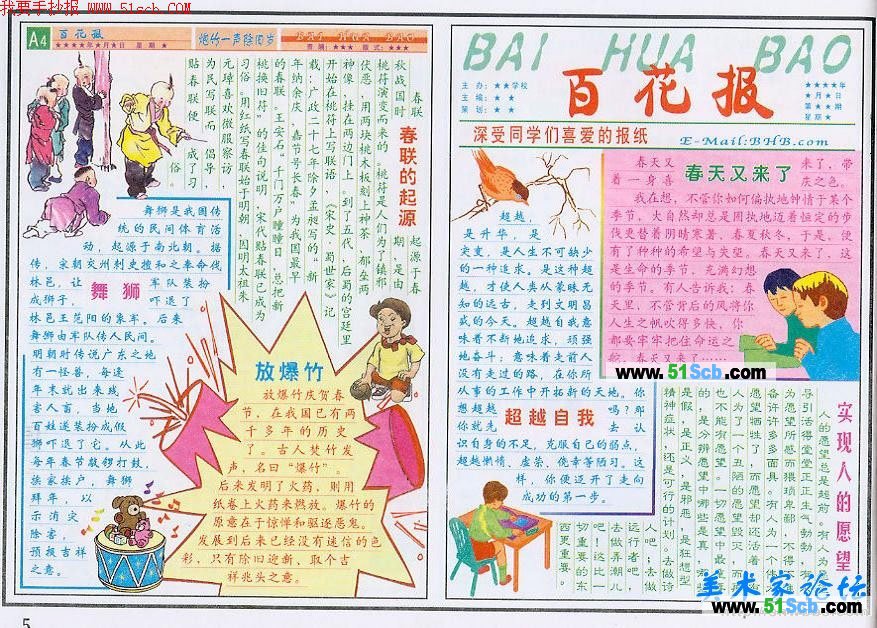 我要手抄报 www.51scb.com
A4
百花报
★★★★年★月★日 星期★
炮竹一声除旧岁
BAI HUA BAO
责编：★★★ 版式：★★★
春联的起源
春联起源于春
秋战国时期，是由
桃符演变而来的。桃符是人们为了镇邪
伏恶，用两块桃木板刻上神荼、郁垒两
神像，挂在两边门上。到了五代，后蜀的宫廷里
开始在桃符上写联语，《宋史·蜀世家》记
载：广政二十七年除夕孟昶写的“新
年纳余庆，嘉节号长春”为我国最早
的春联。王安石“千门万户曈曈日，总把新
桃换旧符”的佳句说明，宋代贴春联已成为
习俗。用红纸写春联始于明朝，因明太祖朱
元璋喜欢微服察访
为民写联而倡导，
贴春联便成了习
俗。
舞狮
舞狮是我国传
统的民间体育活
动，起源于南北朝。据
传，宋朝交州刺史檀和之奉命伐
林邑，让军队装扮
成狮子，吓退了
林邑王范阳的象军。后来
舞狮由军队传入民间。
明朝时传说广东之地
有一怪兽，每逢
年末就出来残
害人畜，当地
百姓遂装扮成假
狮吓退了它。从此
每年春节敲锣打鼓，
挨家挨户，舞狮
拜年，以
示消灾
除害，
预报吉祥
之意。
放爆竹
放爆竹庆贺春
节，在我国已有两
千多年的历史
了。古人焚竹发
声，名曰“爆竹”。
后来发明了火药，则用
纸卷上火药来燃放。爆竹的
原意在于惊惮和驱逐恶鬼。
发展到后来已经没有迷信的色
彩，只有除旧迎新、取个吉
祥兆头之意。
5
BAI HUA BAO
主办：★★学校
主编：★★
策划：★★
百花报
★★★★年
★月★日
第★★期
星期★
深受同学们喜爱的报纸
E-Mail:BHB.com
春天又来了
春天又来了，带
着一身喜庆之色。
我在想，不管你如何偏执地钟情于某个
季节，大自然却总是固执地迈着恒定的步
伐更替着阴晴寒暑、春夏秋冬，于是，便
有了种种的希望与失望。春天又来了，这
是生命的季节，充满幻想
的季节。有人告诉我：春
天里，不管背后的风将你
人生之帆吹得多快，你
都要牢牢把住命运之
舵。春天又来了……
超越自我
超越，
是升华，是
突变，是人生不可缺少
的一种追求。是这种超
越，才使人类从蒙昧无
知的远古，走到文明昌
盛的今天。超越自我意
味着不断地追求，顽强
地奋斗；意味着走前人
没有走过的路，在你所
从事的工作中开拓新的天地。你
想超越吗？那
你就先去认
识自身的不足，克服自己的弱点，
超越懒惰、虚荣、侥幸等陋习。这
样，你便迈开了走向
成功的第一步。
www.51Scb.com
实现人的愿望
人的愿望总是超前，有人为愿望
导引活得堂堂正正生气勃勃，有人
为愿望所惑而猥琐卑鄙，不得不准
备许许多多面具。有人为一个伟大的
愿望牺牲了，而愿望却还活着；有
人为了一个丑陋的愿望毁灭，而愿望
也不能有愿望。一切愿望中最重要
的，是分辨愿望中哪些是真，哪些
是假，是正义，是邪恶，是狂想型
精神症状，还是可行的计划。去做诗
人吧；去做
远行者吧；
去做弄潮儿
吧！这比一
切重要的东
西更重要。
美术家论坛
www.51Scb.com